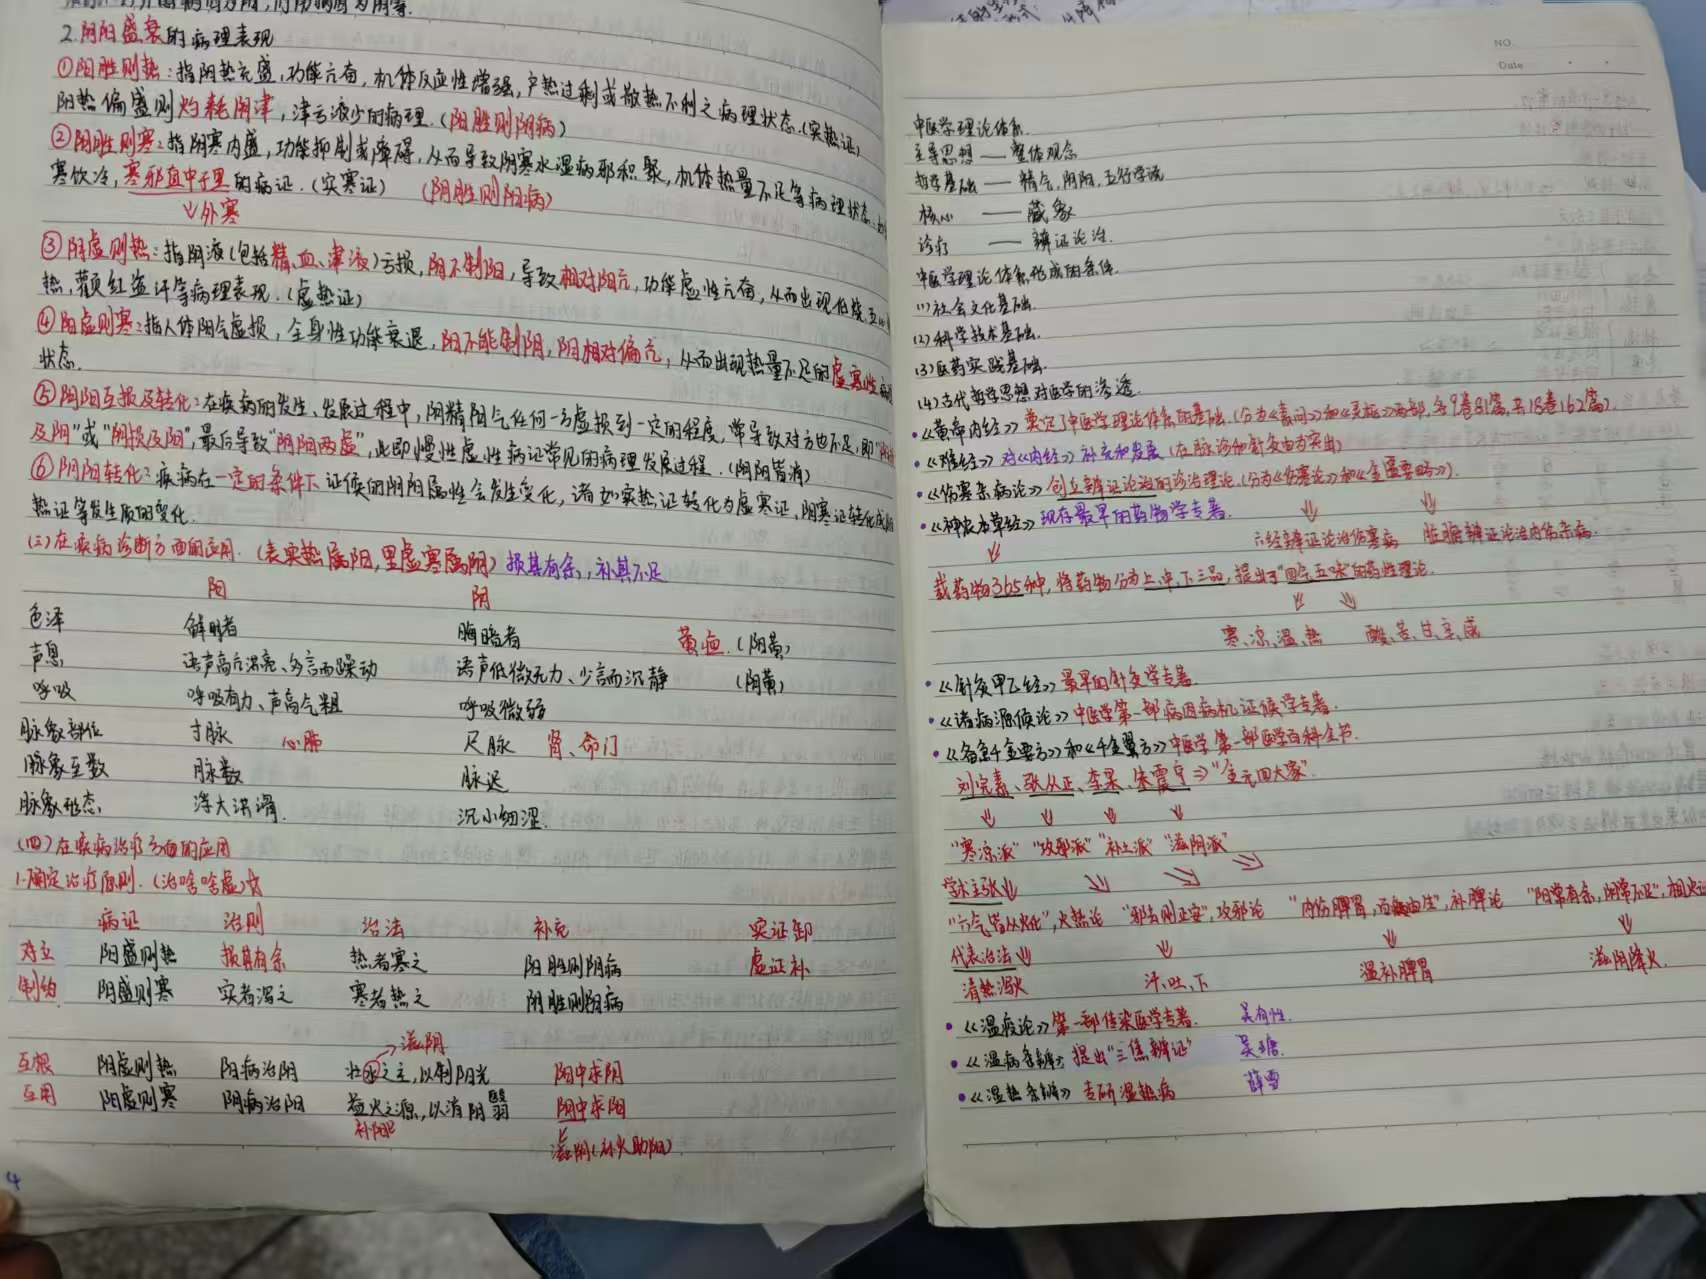 2.阴阳盛衰的病理表现
①阳胜则热：指阳热亢盛，功能亢奋，机体反应性增强，产热过剩或散热不利之病理状态.(实热证)
阳热偏盛则灼耗阴津，津亏液少的病理.(阳胜则阴病)
②阴胜则寒：指阴寒内盛，功能抑制或障碍，从而导致阴寒水湿病邪积聚，机体热量不足等病理状态.
寒饮冷，寒邪直中于里的病证.(实寒证) (阴胜则阳病)
外寒
③阴虚则热：指阴液(包括精、血、津液)亏损，阴不制阳，导致相对阳亢，功能虚性亢奋，从而出现低烧、五心
热，颧红盗汗等病理表现.(虚热证)
④阳虚则寒：指人体阳气虚损，全身性功能衰退，阳不能制阴，阴相对偏亢，从而出现热量不足的虚寒性病
状态.
⑤阴阳互损及转化：在疾病的发生、发展过程中，阴精阳气任何一方虚损到一定的程度，常导致对方也不足，即"
及阴"或"阴损及阳"，最后导致"阴阳两虚"，此即慢性虚性病证常见的病理发展过程.(阴阳皆消)
⑥阴阳转化：疾病在一定的条件下证候的阴阳属性会发生变化，诸如实热证转化为虚寒证，阴寒证转化成
热证等发生质的变化.
(三)在疾病诊断方面的应用. (表实热属阳，里虚寒属阴) 损其有余，补其不足
阳 阴
色泽 鲜明者 晦暗者 黄疸.(阴黄)
声息 语声高亢洪亮、多言而躁动 语声低微无力、少言而沉静 (阴黄)
呼吸 呼吸有力、声高气粗 呼吸微弱
脉象部位 寸脉 心肺 尺脉 肾、命门
脉象至数 脉数 脉迟
脉象形态 浮大洪滑. 沉小细涩.
(四)在疾病治疗方面的应用
1.确定治疗原则.(治啥啥虚)
病证 治则 治法 补充 实证卸
对立 阳盛则热 损其有余 热者寒之 阳胜则阴病 虚证补
制约 阴盛则寒 实者泻之 寒者热之 阴胜则阳病
滋阴
互根 阴虚则热 阳病治阴 壮水之主，以制阳光 阳中求阴
互用 阳虚则寒 阴病治阳 益火之源，以消阴翳 阴中求阳
补阳 滋阴(补火助阳)
4
NO.
Date
中医学理论体系.
主导思想 — 整体观念
哲学基础 — 精气，阴阳，五行学说
核心 — 藏象
诊疗 — 辨证论治.
中医学理论体系形成的条件.
(1)社会文化基础.
(2)科学技术基础.
(3)医药实践基础.
(4)古代哲学思想对医学的渗透.
•《黄帝内经》奠定了中医学理论体系的基础.(分为《素问》和《灵枢》两部，各9卷81篇，共18卷162篇).
•《难经》对《内经》补充和发展(在脉诊和针灸方面突出)
•《伤寒杂病论》创立辨证论治的诊治理论.(分为《伤寒论》和《金匮要略》).
•《神农本草经》现存最早的药物学专著.
六经辨证论治伤寒病 脏腑辨证论治内伤杂病.
载药物365种，将药物分为上、中、下三品，提出了"四气五味"的药性理论.
寒、凉、温、热 酸、苦、甘、辛、咸
•《针灸甲乙经》最早的针灸学专著.
•《诸病源候论》中医学第一部病因病机证候学专著.
•《备急千金要方》和《千金翼方》中医学第一部医学百科全书.
刘完素、张从正、李杲、朱震亨⇒"金元四大家".
"寒凉派" "攻邪派" "补土派" "滋阴派"
学术主张
"六气皆从火化"，火热论 "邪去则正安"，攻邪论 "内伤脾胃，百病由生"，补脾论 "阳常有余，阴常不足"，相火论
代表治法
清热泻火 汗、吐、下 温补脾胃 滋阴降火.
•《温疫论》第一部传染医学专著. 吴有性.
•《温病条辨》提出"三焦辨证" 吴瑭.
•《湿热条辨》专研湿热病 薛雪